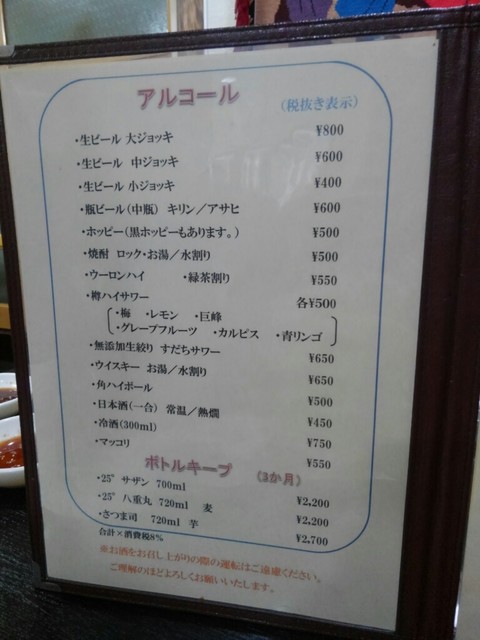 アルコール (税抜き表示)
・生ビール 大ジョッキ ¥800
・生ビール 中ジョッキ ¥600
・生ビール 小ジョッキ ¥400
・瓶ビール(中瓶) キリン／アサヒ ¥600
・ホッピー(黒ホッピーもあります。) ¥500
・焼酎 ロック・お湯／水割り ¥500
・ウーロンハイ ・緑茶割り ¥550
・樽ハイサワー 各¥500
・梅 ・レモン ・巨峰
・グレープフルーツ ・カルピス ・青リンゴ
・無添加生絞り すだちサワー ¥650
・ウイスキー お湯／水割り ¥650
・角ハイボール ¥500
・日本酒(一合) 常温／熱燗 ¥450
・冷酒(300ml) ¥750
・マッコリ ¥550
ボトルキープ (3か月)
・25° サザン 700ml ¥2,200
・25° 八重丸 720ml 麦 ¥2,200
・さつま司 720ml 芋 ¥2,700
合計×消費税8%
※お酒をお召し上がりの際の運転はご遠慮ください。
ご理解のほどよろしくお願いいたします。